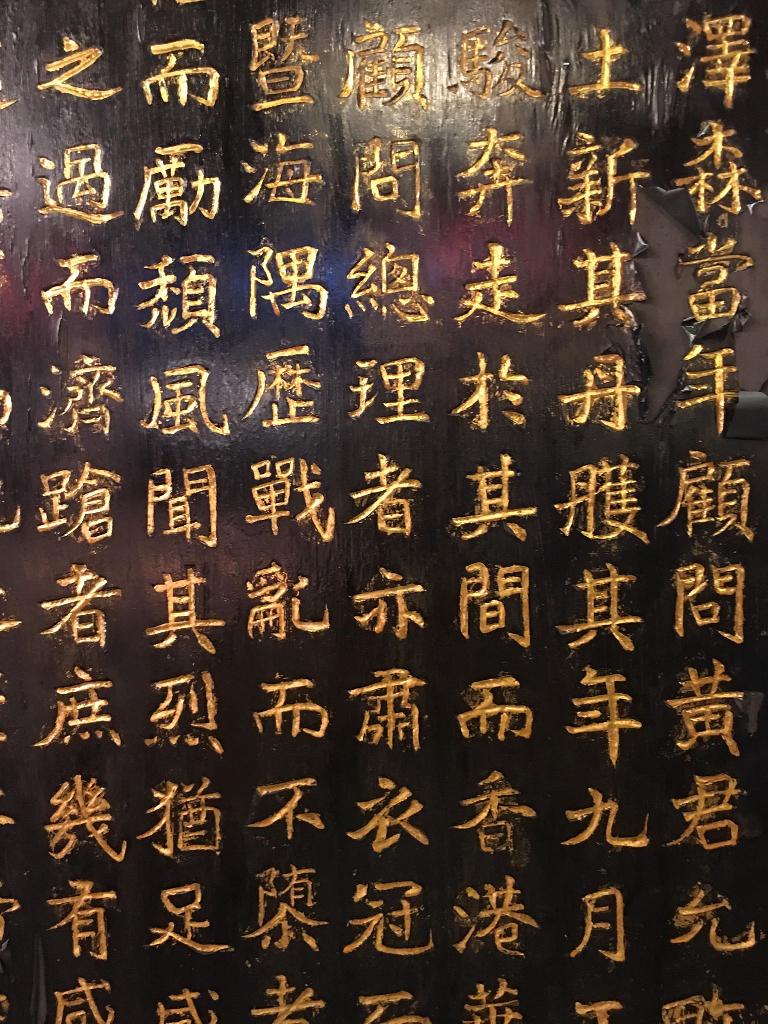 澤森當年顧問黃君允
土新其丹雘其年九月
駿奔走於其間而香港華
顧問總理者亦肅衣冠
暨海隅歷戰亂而不隳者
而勵頹風聞其烈猶足
之過而濟蹌者庶幾有